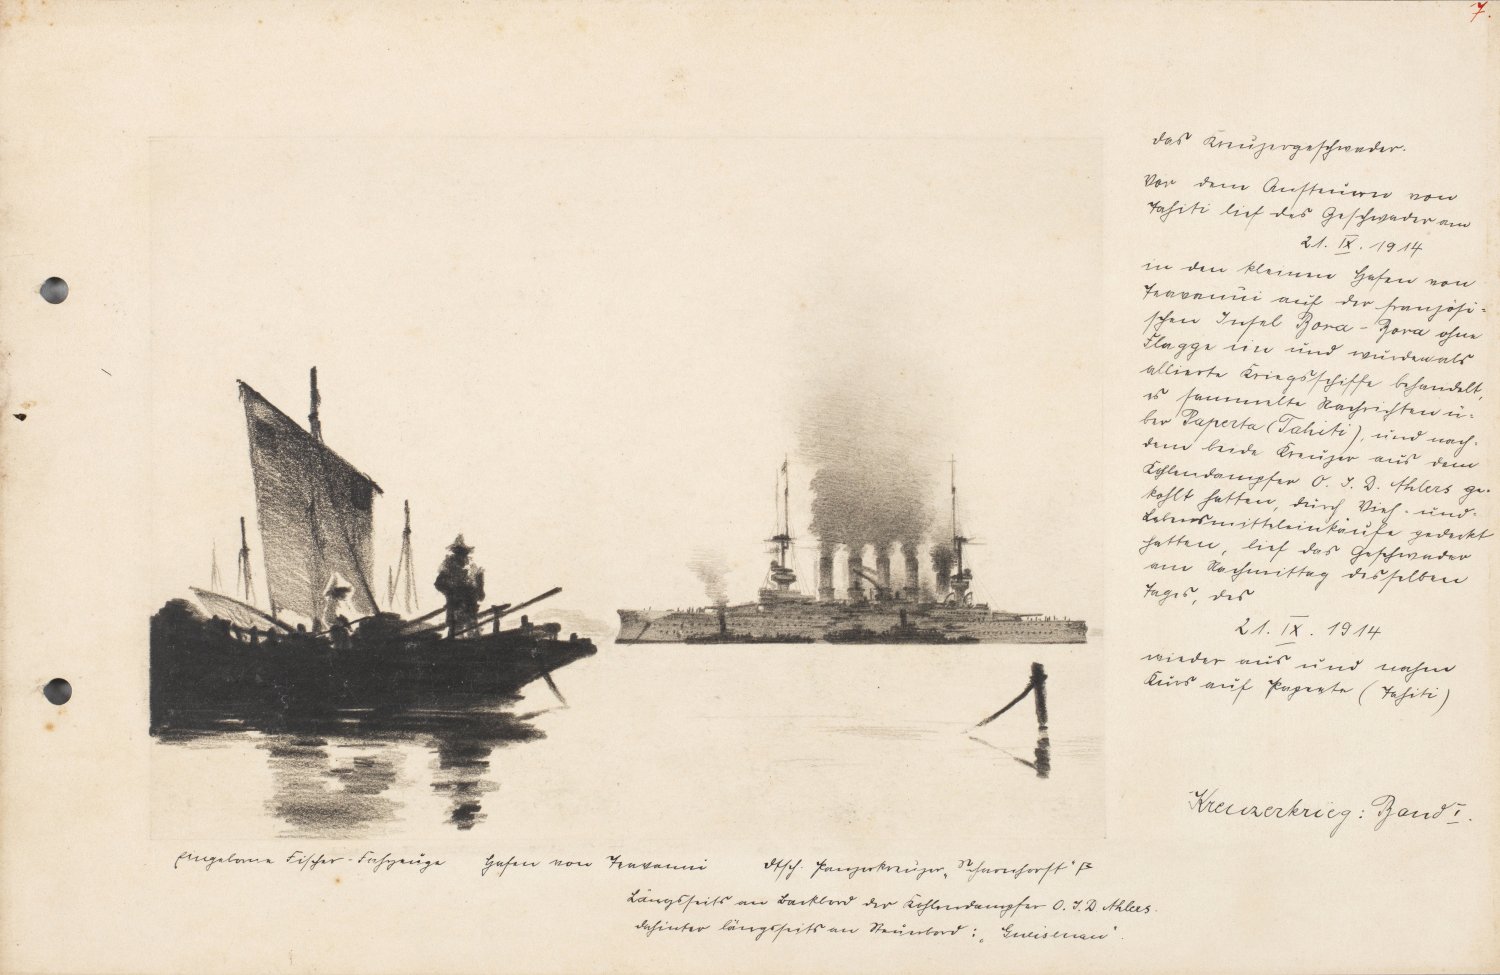 7.
das Kreuzergeschwader.
Vor dem Ansteuern von
Tahiti lief das Geschwader am
21. IX. 1914
in den kleinen Hafen von
Teavanui auf der französi-
schen Insel Bora-Bora ohne
Flagge ein und wurden als
allierte Kriegsschiffe behandelt,
es sammelte Nachrichten ü-
ber Paperta (Tahiti), und nach-
dem beide Kreuzer aus dem
Kohlendampfer O. J. D. Ahlers ge-
kohlt hatten, durch Vieh- und-
Lebensmitteleinkäufe gedeckt
hatten, lief das Geschwader
am Nachmittag desselben
Tages, des
21. IX. 1914
wieder aus und nahm
Kurs auf Papeete (Tahiti)
Kreuzerkrieg: Band I.
Eingeborne Fischer-Fahrzeuge Hafen von Teavanui dtsch. Panzerkreuzer „Scharnhorst"
Längsseits an Backbord der Kohlendampfer O. J. D Ahlers.
dahinter längsseits an Steuerbord: „Gneisenau".